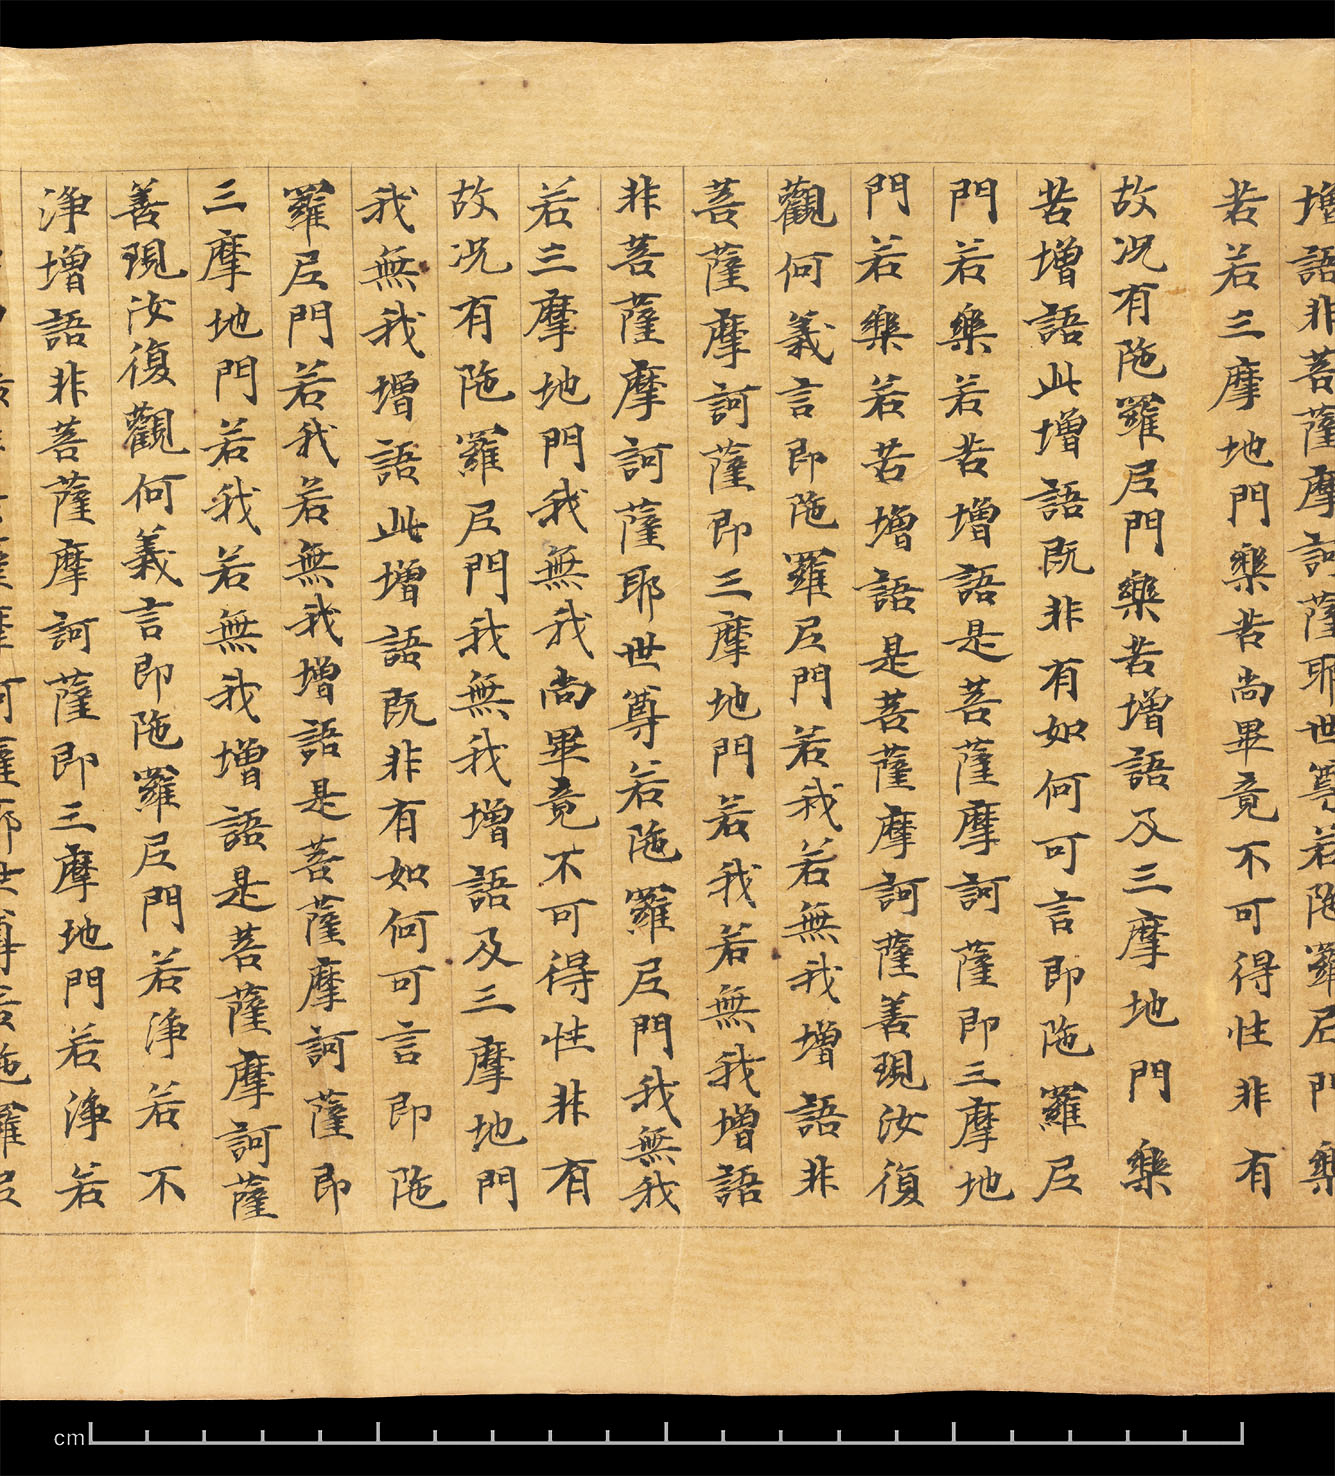 增語非菩薩摩訶薩耶世尊若陁羅尼門樂
苦若三摩地門樂苦尚畢竟不可得性非有
故况有陁羅尼門樂苦增語及三摩地門樂
苦增語此增語既非有如何可言即陁羅尼
門若樂若苦增語是菩薩摩訶薩即三摩地
門若樂若苦增語是菩薩摩訶薩善現汝復
觀何義言即陁羅尼門若我若無我增語非
菩薩摩訶薩即三摩地門若我若無我增語
非菩薩摩訶薩耶世尊若陁羅尼門我無我
若三摩地門我無我尚畢竟不可得性非有
故况有陁羅尼門我無我增語及三摩地門
我無我增語此增語既非有如何可言即陁
羅尼門若我若無我增語是菩薩摩訶薩即
三摩地門若我若無我增語是菩薩摩訶薩
善現汝復觀何義言即陁羅尼門若淨若不
淨增語非菩薩摩訶薩即三摩地門若淨若
薩摩訶薩耶世尊若陁羅尼
cm